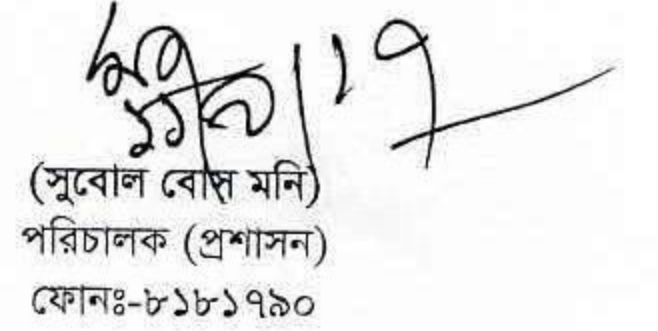 (সুবোল বোস মনি)
পরিচালক (প্রশাসন)
ফোনঃ-৮১৮১৭৯০